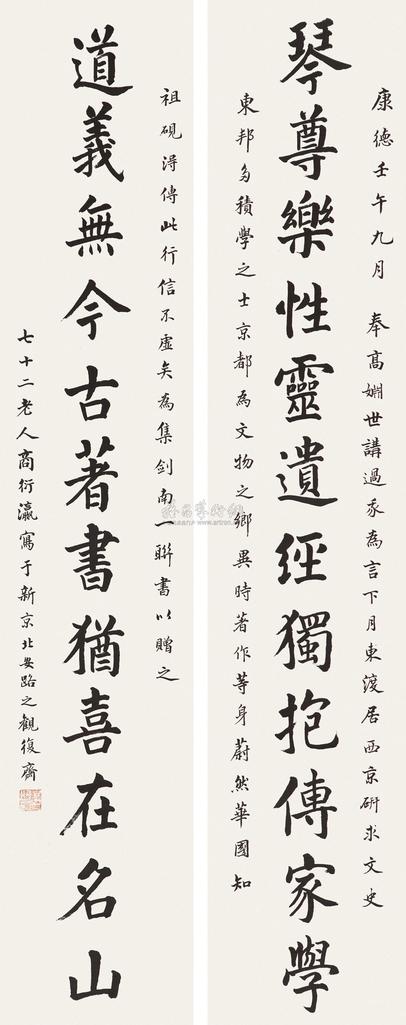 康德壬午九月 奉高嫻世講過豕為言下月東渡居西京研求文史
琴尊樂性靈遺經獨抱傳家學
東邦多積學之士京都為文物之鄉異時著作等身蔚然華國知
祖硯淂傳此行信不虛矣為集劍南一聯書以贈之
道義無今古著書猶喜在名山
七十二老人商衍瀛寫于新京北安路之觀復齋